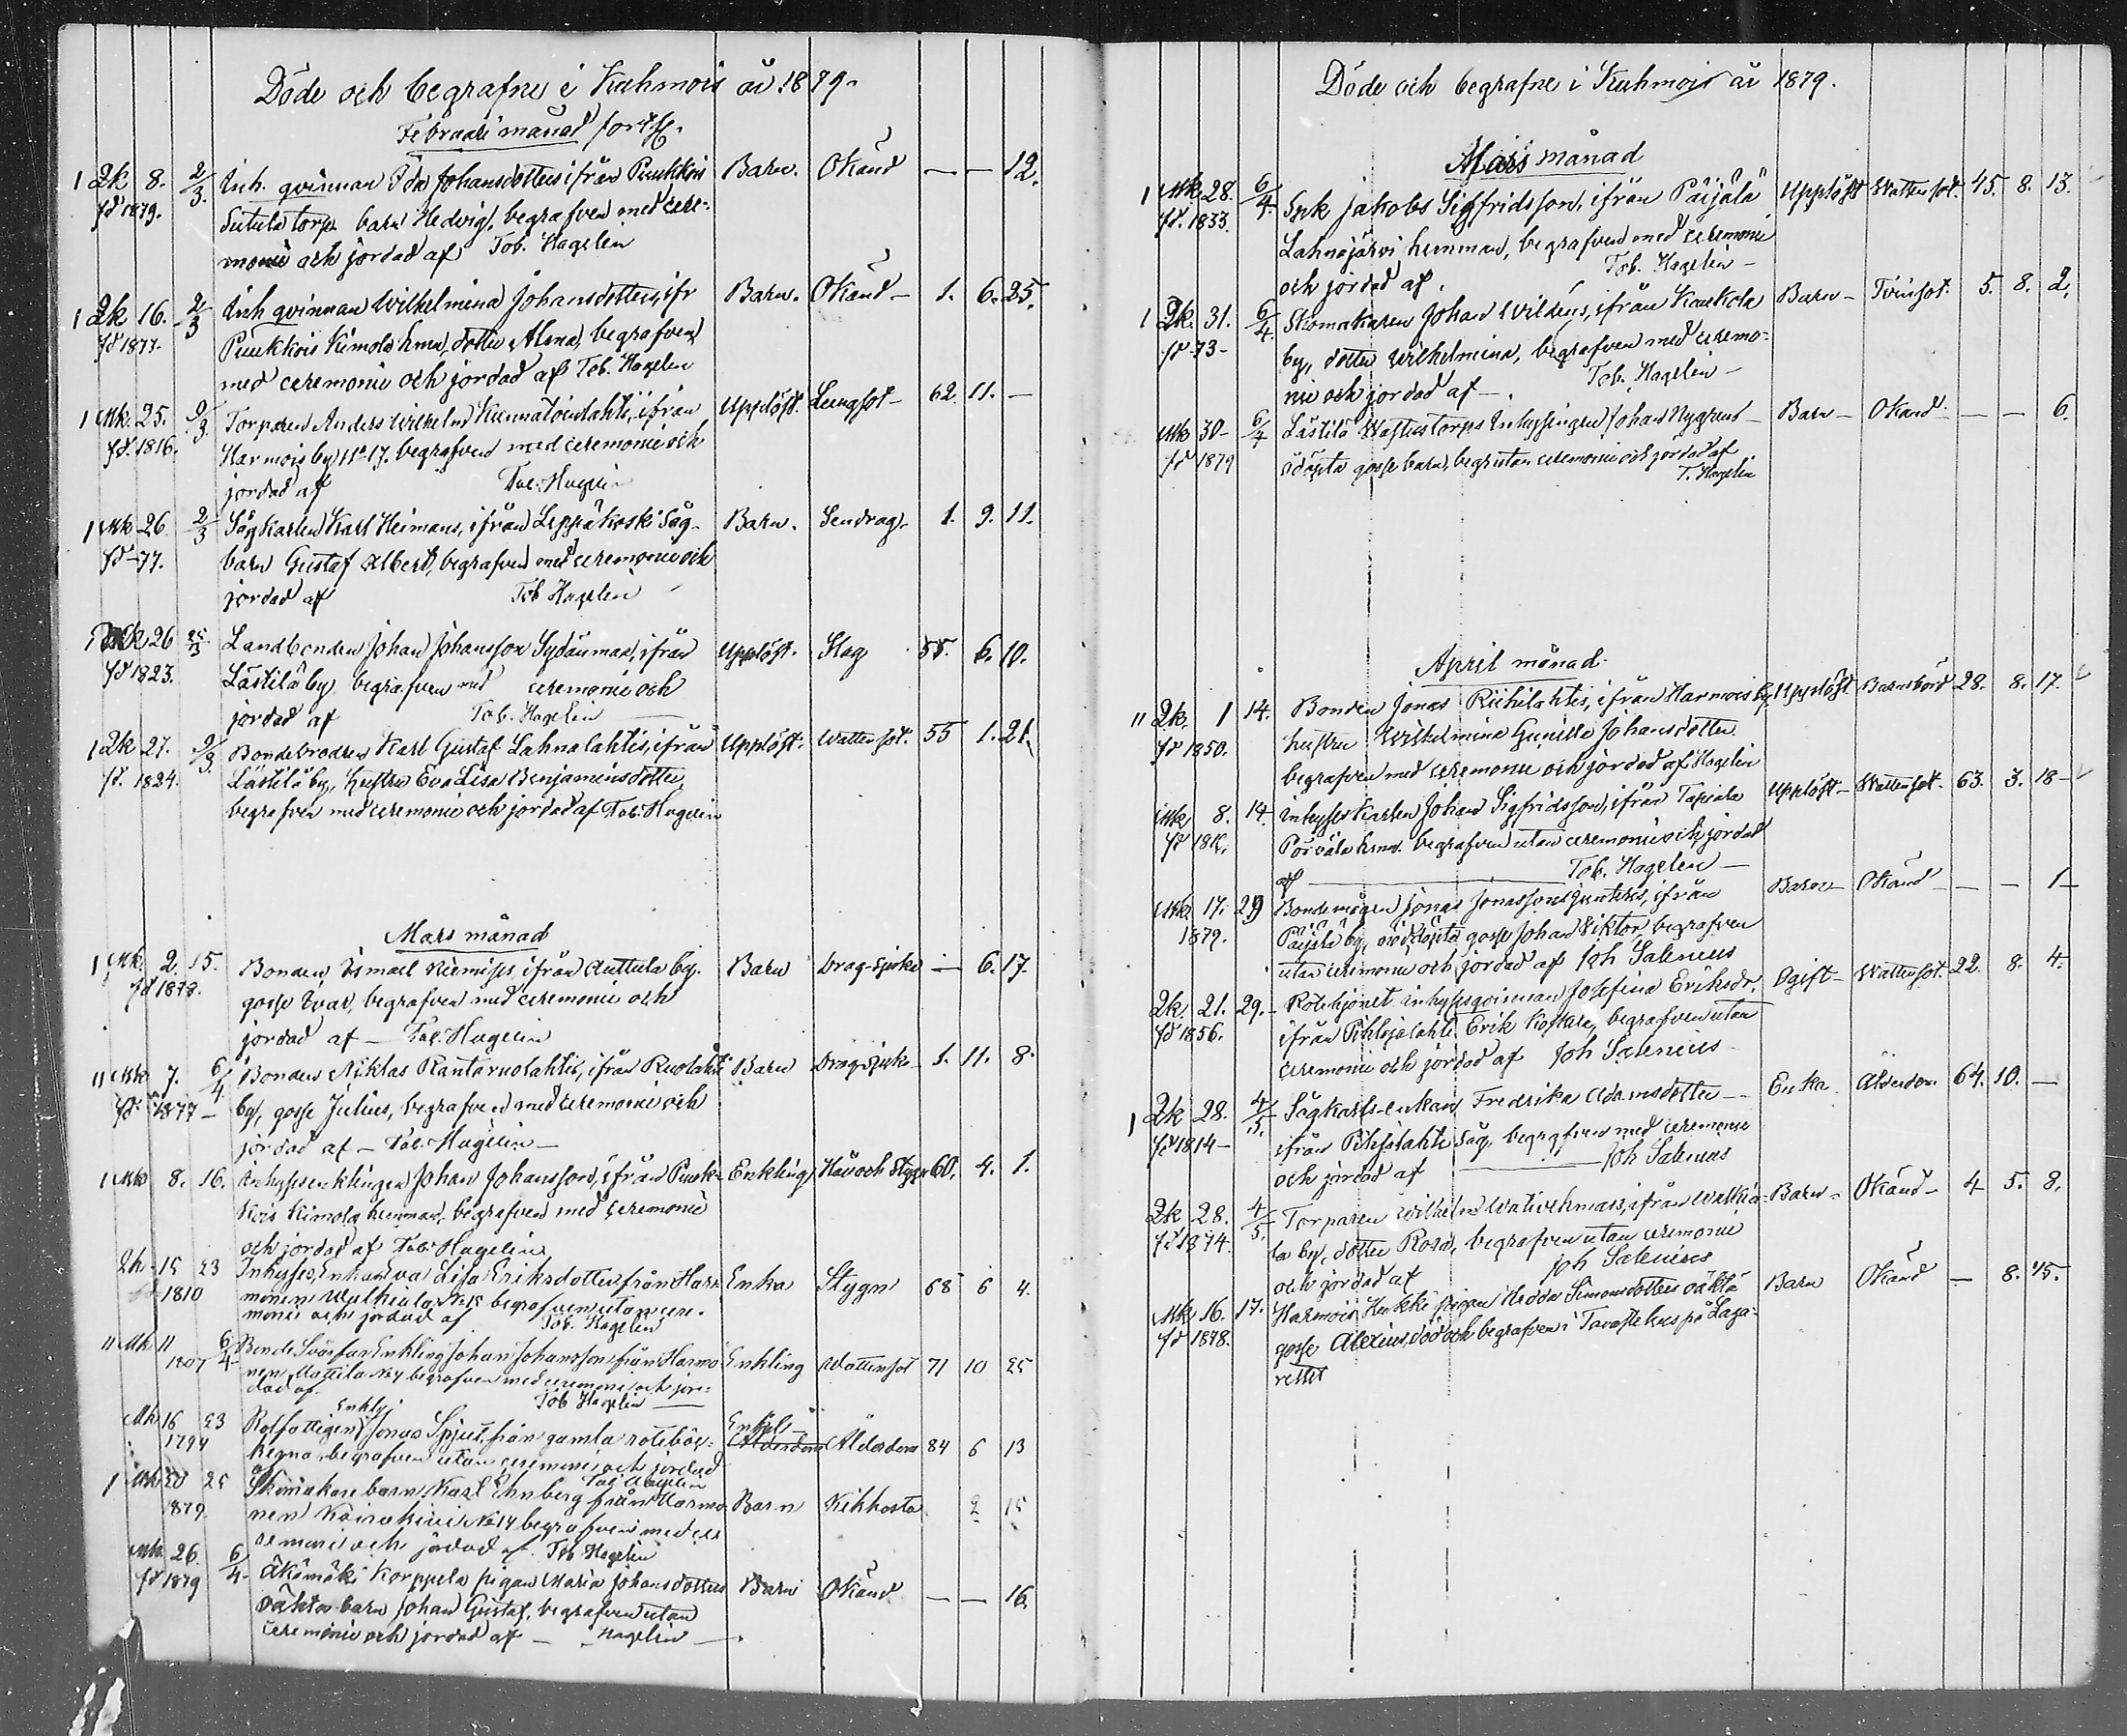 Döde och begrafne i Kuhmois år 1879.
Februari månad forts.
1 Qk 8. 2/3. Inh. qvinnan Ida Johansdotters ifrån Puukkois Barn. Okänd — — 12.
fd 1879. Sutula torp barn Hedvig, begrafven med cere-
monie och jordad af Tob. Hagelin
1 Qk 16. 2/3 Inh qvinnan Wilhelmina Johansdotters, ifr Barn. Okänd — 1. 6. 25.
fd 1877. Puukkois Kimola hmn, dotter Alma, begrafven
med ceremonie och jordad af Tob. Hagelin
1 Mk. 25. 2/3. Torparen Anders Wilhelm ifrån Upplöst. Lungsot — 62. 11. —
fd. 1816. Harmois by No 17. begrafven med ceremonie och
jordad af Tob. Hagelin
1 Mk 26 2/3 Sågkarlen Karl Heimans, ifrån Leppäkoski Såg- Barn. Sendrag. 1. 9. 11.
fd -77. barn Gustaf Albert, begrafven med ceremonie och
jordad af Tob Hagelin
1 26 25/3 Landbonden Johan Johansson Sydänmaa, ifrån Upplöst. Slag 55. 6. 10.
fd 1823. Lästilä by begrafven med ceremonie och
jordad af Tob. Hagelin
1 Qk 27. 2/3. Bondebrodren Karl Gustaf Lahnalahtis, ifrån Upplöst. Wattensot. 55 1. 21.
fd. 1824. Lästilä by, hustru Eva Lisa Benjaminsdotter,
begrafven med ceremonie och jordad af Tob. Hagelin
Mars månad
1 Mk. 2. 15. Bonden Ismael Niemis, ifrån Auttula by. Barn Drag-sjuka — 6. 17.
fd 1878. gosse Ivar, begrafven med ceremonie och
jordad af — Tob. Hagelin
11 Mk 7. 6/4. Bonden Niklas Rantaruolahtis, ifrån Ruolahti Barn Dragsjuka — 1. 11. 8.
fd. 1877 — by, gosse Julius, begrafven med ceremonie och
jordad af — Tob. Hagelin —
1 Mk 8. 16. Inhysesenklingen Johan Johansson, ifrån Puuk- Enkling Håll och Stygn 60. 4. 1.
kois Kimola hemman, begrafven med ceremonie
och jordad af Tob. Hagelin
Qk 15 23 Inhyses Enkan Eva Lisa Eriksdotter från Har- Enka Stygn 68 6 4.
1810 monen No 15 begrafven utan cere-
monie och jordad af Tob. Hagelin
11 Mk 11 6/4 Bonde Svärfar Enkling Johan Johansson från Harmo- Enkling Wattensot 71 10 25
1807 nen Mattila No 4 begrafven med ceremoni och jor-
dad af Tob Hagelin —
Enkl.
Mk 16 23 Rotfattigen Jonas Spjut från gamla rotebör- Enkl. Ålderdom Ålderdom 84 6 13
1794 begrafven utan ceremoni och jordad
af Tob Hagelin
1 Mk 20 25 Skomakare barn Karl Ehnberg från Harmo- Barn Kikhosta 2 15
1879. nen No 14 begrafven med ce-
remoni och jordad af Tob Hagelin
Mk. 26. 6/4 Äkömäki Korppela pigan Maria Johansdotters Barn Okänd — — 16.
fd 1879 oäkta barn Johan Gustaf, begrafven utan
ceremonie och jordad af — Hagelin —
Döde och begrafne i Kuhmois år 1879.
Mars månad
1 Mk 28. 6/4. Jakobs Sigfridsson, ifrån Päijälä Upplöst Wattensot. 45. 8. 13.
fd. 1833. Lahnajärvi hemman, begrafven med ceremonie
och jordad af. Tob. Hagelin —
1 Qk. 31. 6/4. Skomakaren Johan Wildens, ifrån Kaukola Barn — Tvinsot. 5. 8. 2.
fd -73- by, dotter Wilhelmina, begrafven med ceremo-
nie och jordad af — Tob. Hagelin —
Mk 30 — 6/4 Lästilä torps Inhysingen Johan Nygrens — Barn — Okänd — — 6.
fd 1879 odöpta gosse barn, begr utan ceremonie och jordad af
T. Hagelin
April månad.
11 Qk. 1 14. Bonden Jonas Riihilahtis, ifrån Harmois by Upplöst. Barnsbörd 28. 8. 17.
fd 1850. hustru Wilhelmina Gunilla Johansdotter
begrafven med ceremonie och jordad af Hagelin
Mk 8. 14. Inhyses karlen Johan Sigfridsson, ifrån Tapiala Upplöst — Wattensot. 63. 3. 18 —
fd Pöiälä hmn. begrafven utan ceremonie och jordad
af — Tob. Hagelin —
Mk 17. 29 Bondemågen Jonas Jonasson ifrån Barn — Okänd — — 1 —
1879. Päijälä by, nöddöpta gosse Johan Viktor, begrafven
utan ceremonie och jordad af Joh Salenius
Qk. 21. 29. — Rotehjonet inhysesqvinnan Josefina Eriksdr. Ogift — Wattensot. 22. 8. 4.
fd 1856. ifrån Pihlajalahti Erik Koskela, begrafven utan
ceremonie och jordad af Joh Salenius
1 Qk 28. 4/5. Sågkarls-enkan Fredrika Adamsdotter — Enka. Ålderdom 64. 10. —
fd 1814 — ifrån såg, begrafven med ceremonie
och jordad af — Joh Salenius
Qk 28. 4/5. Torparen Wilhelm ifrån Walkia- Barn — Okänd — 4 5. 8.
fd 1874. la by, dotter Rosa, begrafven utan ceremonie
och jordad af Joh Salenius
Mk 16. 17. Harmois Hukki pigan Hedda Simonsdotters oäkta Barn Okänd — 8. 15.
fd 1878. gosse Alexius, död och begrafven i Tavastehus på Laza-
rettet